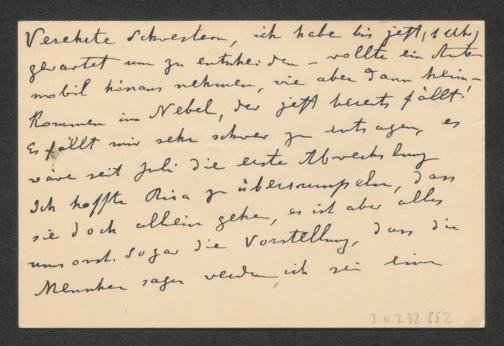 Verehrte Schwestern, ich habe bis jetzt, 1 Uhr,
gewartet um zu entscheiden – wollte ein Auto-
mobil hinaus nehmen, wie aber dann heim-
kommen im Nebel, der jetzt bereits fällt!
Es fällt mir sehr schwer zu entsagen, es
wäre seit Juli die erste Abwechslung
Ich hoffte Risa zu überrumpeln, dass
sie doch allein gehen, es ist aber alles
umsonst. Sogar die Vorstellung, dass die
Menschen sagen werden, ich sei eine
I.N. 232.852